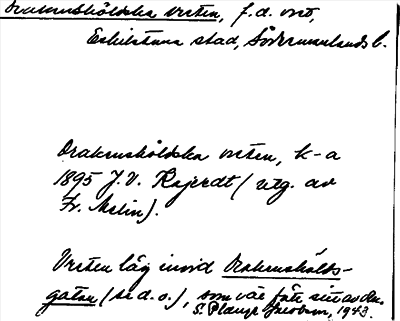 Drakenskiöldska vreten, f.d. vret,
Eskilstuna stad, Södermanlands l.
Drakenskiöldska vreten, k-a
1895 J.V. Kajerdt (utg. av
Fr. Melin).
Vreten låg invid Drakenskiölds-
gatan (se d.o.), som väl fått sitt av den.
S. Plaugg Jacobsson, 1943.